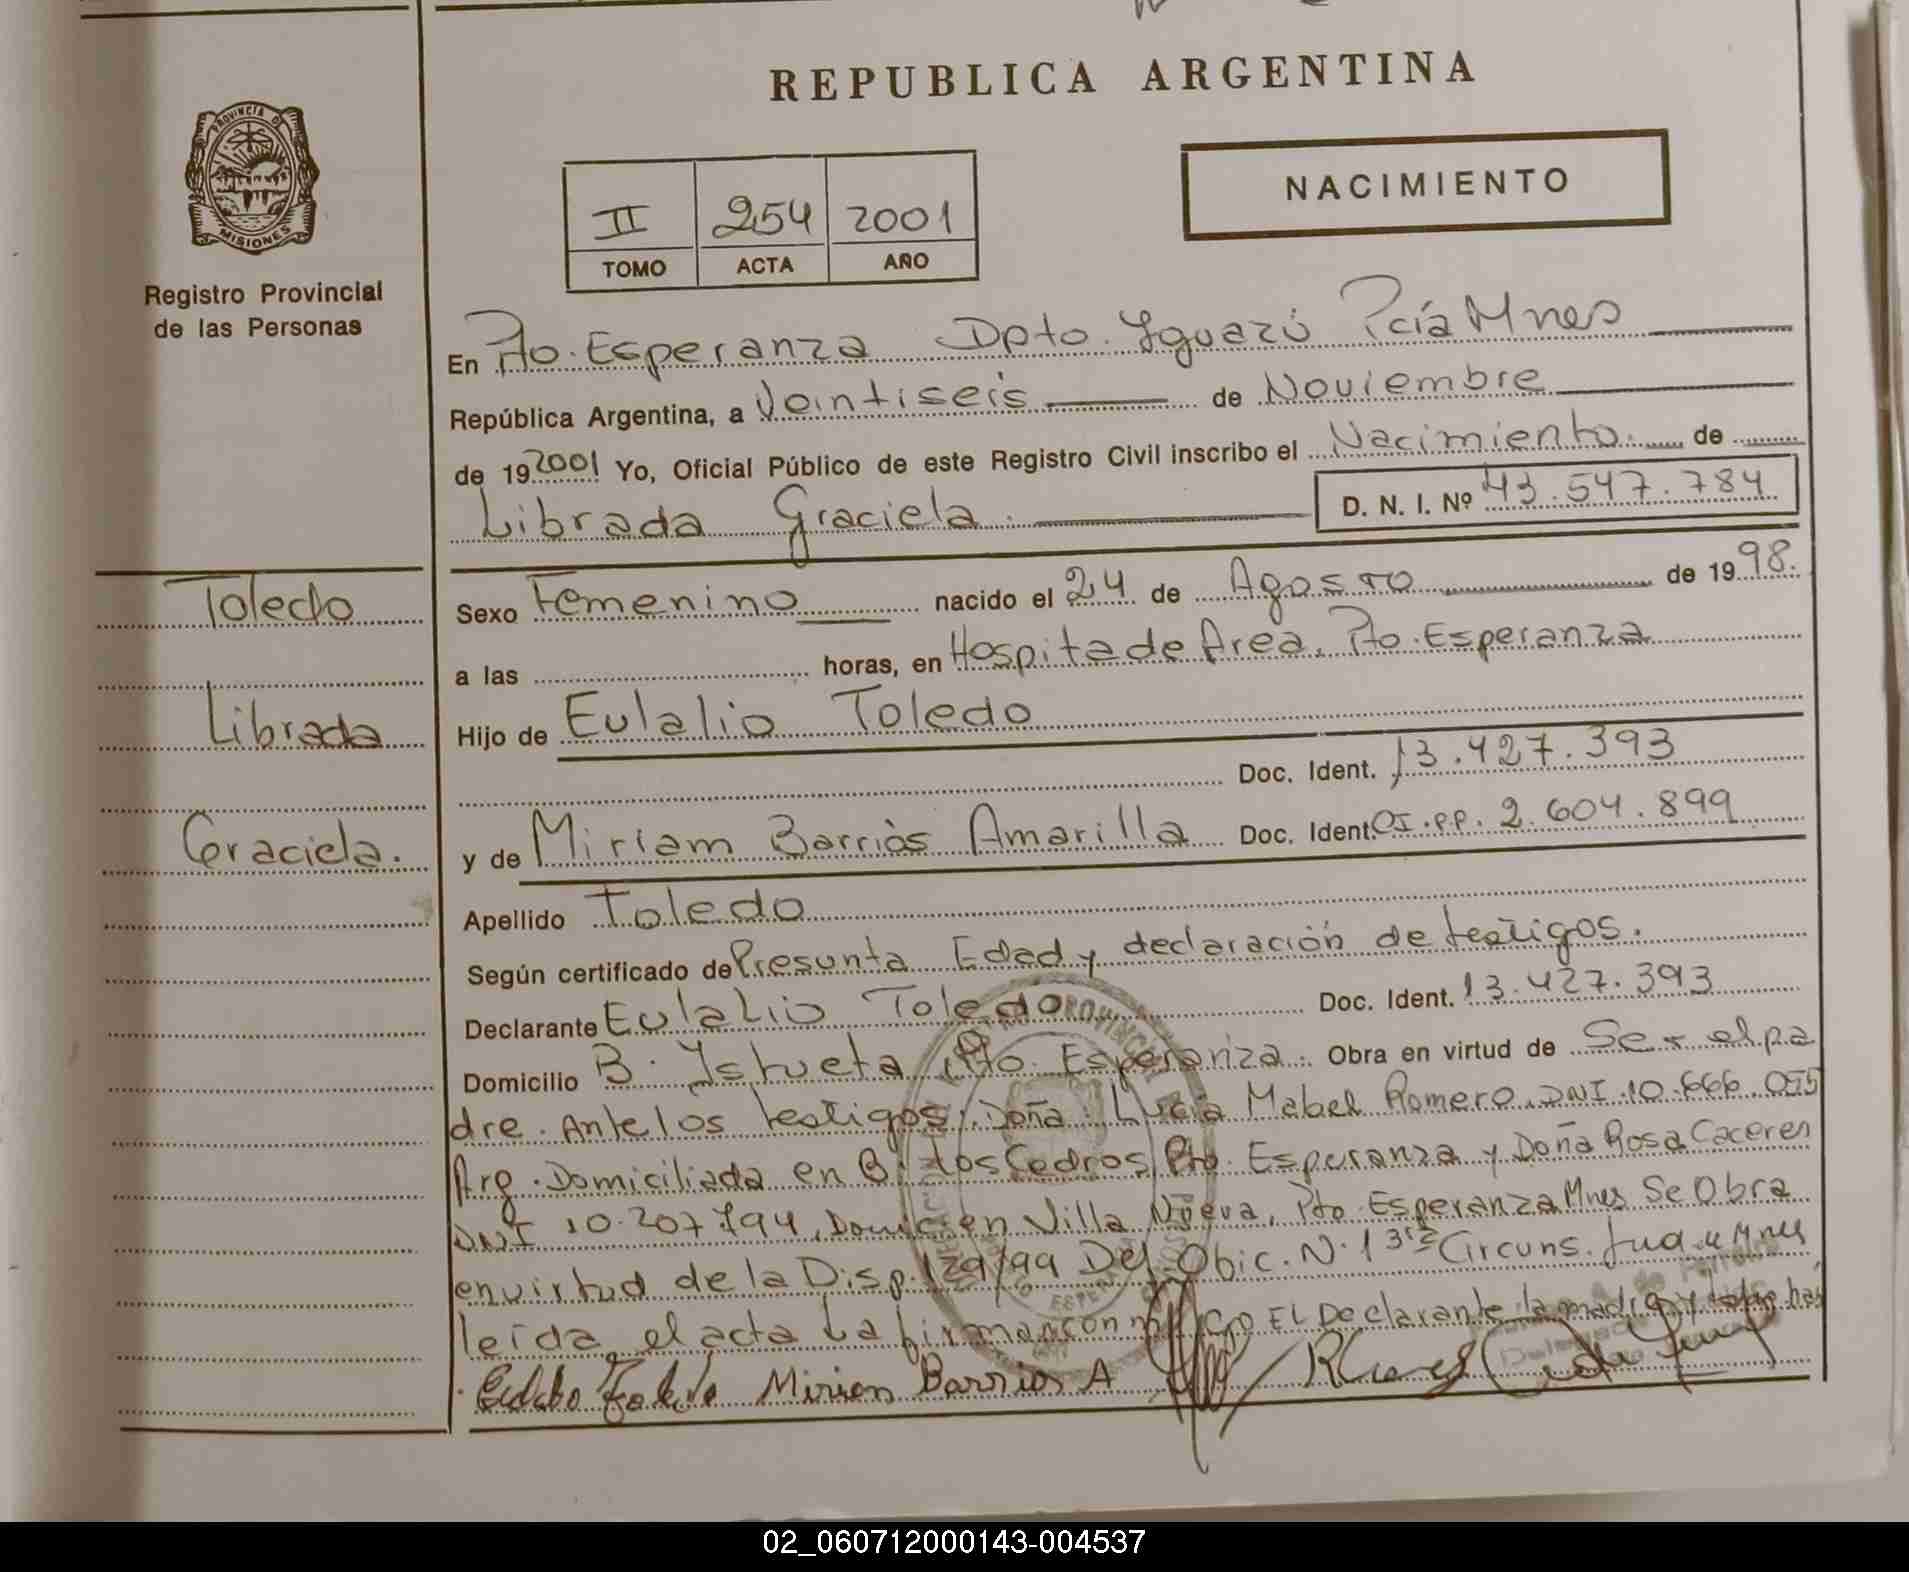 REPUBLICA ARGENTINA
PROVINCIA DE
MISIONES
Registro Provincial
de las Personas
II 254 2001
TOMO ACTA AÑO
NACIMIENTO
En Pto. Esperanza Dpto. Iguazú Pcía Mnes
República Argentina, a Veintiseis de Noviembre
de 19 2001 Yo, Oficial Público de este Registro Civil inscribo el Nacimiento de
Librada Graciela. D. N. I. Nº 43.547.784
Toledo
Librada
Graciela.
Sexo Femenino nacido el 24 de Agosto de 19 98.
a las horas, en Hospital de Area, Pto. Esperanza
Hijo de Eulalio Toledo
Doc. Ident. 13.427.393
y de Miriam Barrios Amarilla Doc. Ident. CI.pp. 2.604.899
Apellido Toledo
Según certificado de Presunta Edad y declaración de testigos.
Declarante Eulalio Toledo Doc. Ident. 13.427.393
Domicilio B. Pto. Esperanza. Obra en virtud de Ser el pa
dre. Ante los testigos: Doña: Lucia Mabel Romero. DNI.10.666.055
Arg. Domiciliada en B. Los Cedros Pto. Esperanza y Doña Rosa Caceres
DNI 10.207.794, Domic. en Villa Nueva, Pto Esperanza Mnes Se Obra
en virtud de la Disp. 129/99 Del Circuns. Jud. Mnes
leída el acta La firman con El Declarante la madre y
Miriam Barrios A
02_060712000143-004537